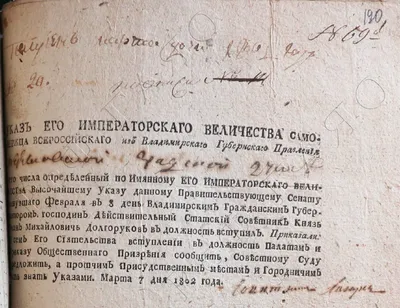 190
№ 69
20.
КАЗЪ ЕГО ИМПЕРАТОРСКАГО ВЕЛИЧЕСТВА САМО-
ВСЕРОССІЙСКАГО изъ Владимирскаго Губернскаго Правленія
Градской Думѣ
го числа опредѣленный по Имянному ЕГО ИМПЕРАТОРСКАГО ВЕЛИ-
Высочайшему Указу данному Правительствующему Сенату
Февраля въ 8 день Владимирскимъ Гражданскимъ Губер-
торомъ, господинъ Дѣйствительный Статскій Совѣтникъ Князь
Михайловичь Долгоруковъ въ должность вступилъ. Приказали:
Его Сіятельства вступленіи въ должность Палатамъ и
казу Общественнаго Призрѣнія сообщить, Совѣстному Суду
редложить, а протчимъ Присутственнымъ мѣстамъ и Городничимъ
знать Указами. Марта 7 дня 1802 года.